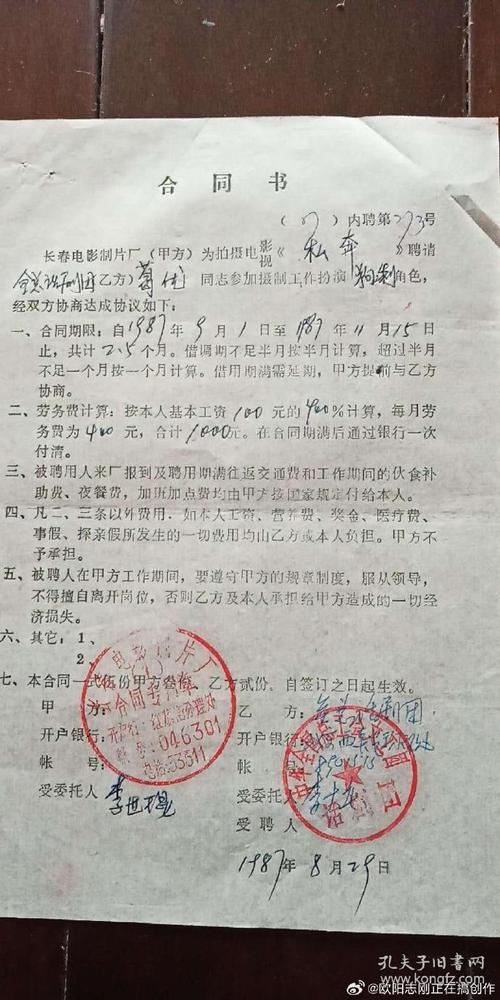 合同书
(87)内聘第273号
长春电影制片厂(甲方)为拍摄电影视《私奔》聘请
全总话剧团乙方)葛优同志参加摄制工作扮演 角色,
经双方协商达成协议如下:
一、合同期限:自1987年9月1日至1987年11月15日
止,共计2.5个月。借调期不足半月按半月计算,超过半月
不足一个月按一个月计算。借用期满需延期,甲方提前与乙方
协商。
二、劳务费计算:按本人基本工资100元的400%计算,每月劳
务费为400元,合计1000元。在合同期满后通过银行一次
付清。
三、被聘用人来厂报到及聘用期满往返交通费和工作期间的伙食补
助费、夜餐费,加班加点费均由甲方按国家规定付给本人。
四、凡二、三条以外费用,如本人工资、营养费、奖金、医疗费、
事假、探亲假所发生的一切费用均由乙方或本人负担。甲方不
予承担。
五、被聘人在甲方工作期间,要遵守甲方的规章制度,服从领导,
不得擅自离开岗位,否则乙方及本人承担给甲方造成的一切经
济损失。
六、其它:1、
2、
七、本合同一式伍份甲方叁份,乙方贰份,自签订之日起生效。
甲方:
乙方:全总话剧团
开户银行:
开户银行:
帐号:
帐号:
受委托人:李世
受委托人:李
受聘人
1987年8月29日
电影制片厂
合同专用章
046301
电话:53311
话剧团
孔夫子旧书网
@欧阳志刚正在搞创作